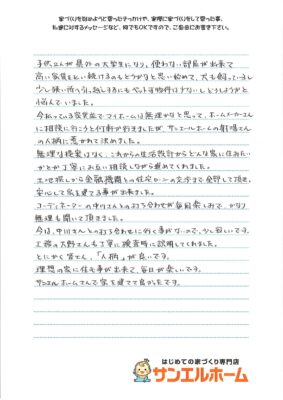 家づくりを始めようと思ったきっかけや、実際に家づくりをして思った事、
私達に対するメッセージなど、何でもOKです。ご自由にお書き下さい。
子供2人が県外の大学生になり、使わない部屋が出来て
高い家賃を払い続けるのもどうかなと思い始めて、犬も飼っているし
少し狭い所へ引越しするにもペット可物件は少ないしどうしようかと
悩んでいました。
今払っている家賃並でマイホームは無理かなと思って、ホームメーカーさん
に相談に行こうと何軒か行きましたが、サンエルホームの
人柄に惹かれて決めました。
無理な提案はなく、これからの生活設計からどんな家に住みたい
かとか丁寧にお互い相談しながら進めてくれました。
土地探しから金融機関との住宅ローンの交渉まで全部して頂き、
安心して家を建てる事が出来ました。
コーディネーターの中川さんとの打ち合わせが毎回楽しみで、かなり
無理も聞いて頂きました。
今は、中川さんとの打ち合わせに行く事がないので、少し寂しいです。
工務の大野さんも丁寧に検査時に説明してくれました。
とにかく皆さん、「人柄」が良いです。
理想の家に住む事が出来て、毎日が楽しいです。
サンエルホームさんで家を建てて良かったです。
はじめての家づくり専門店
サンエルホーム